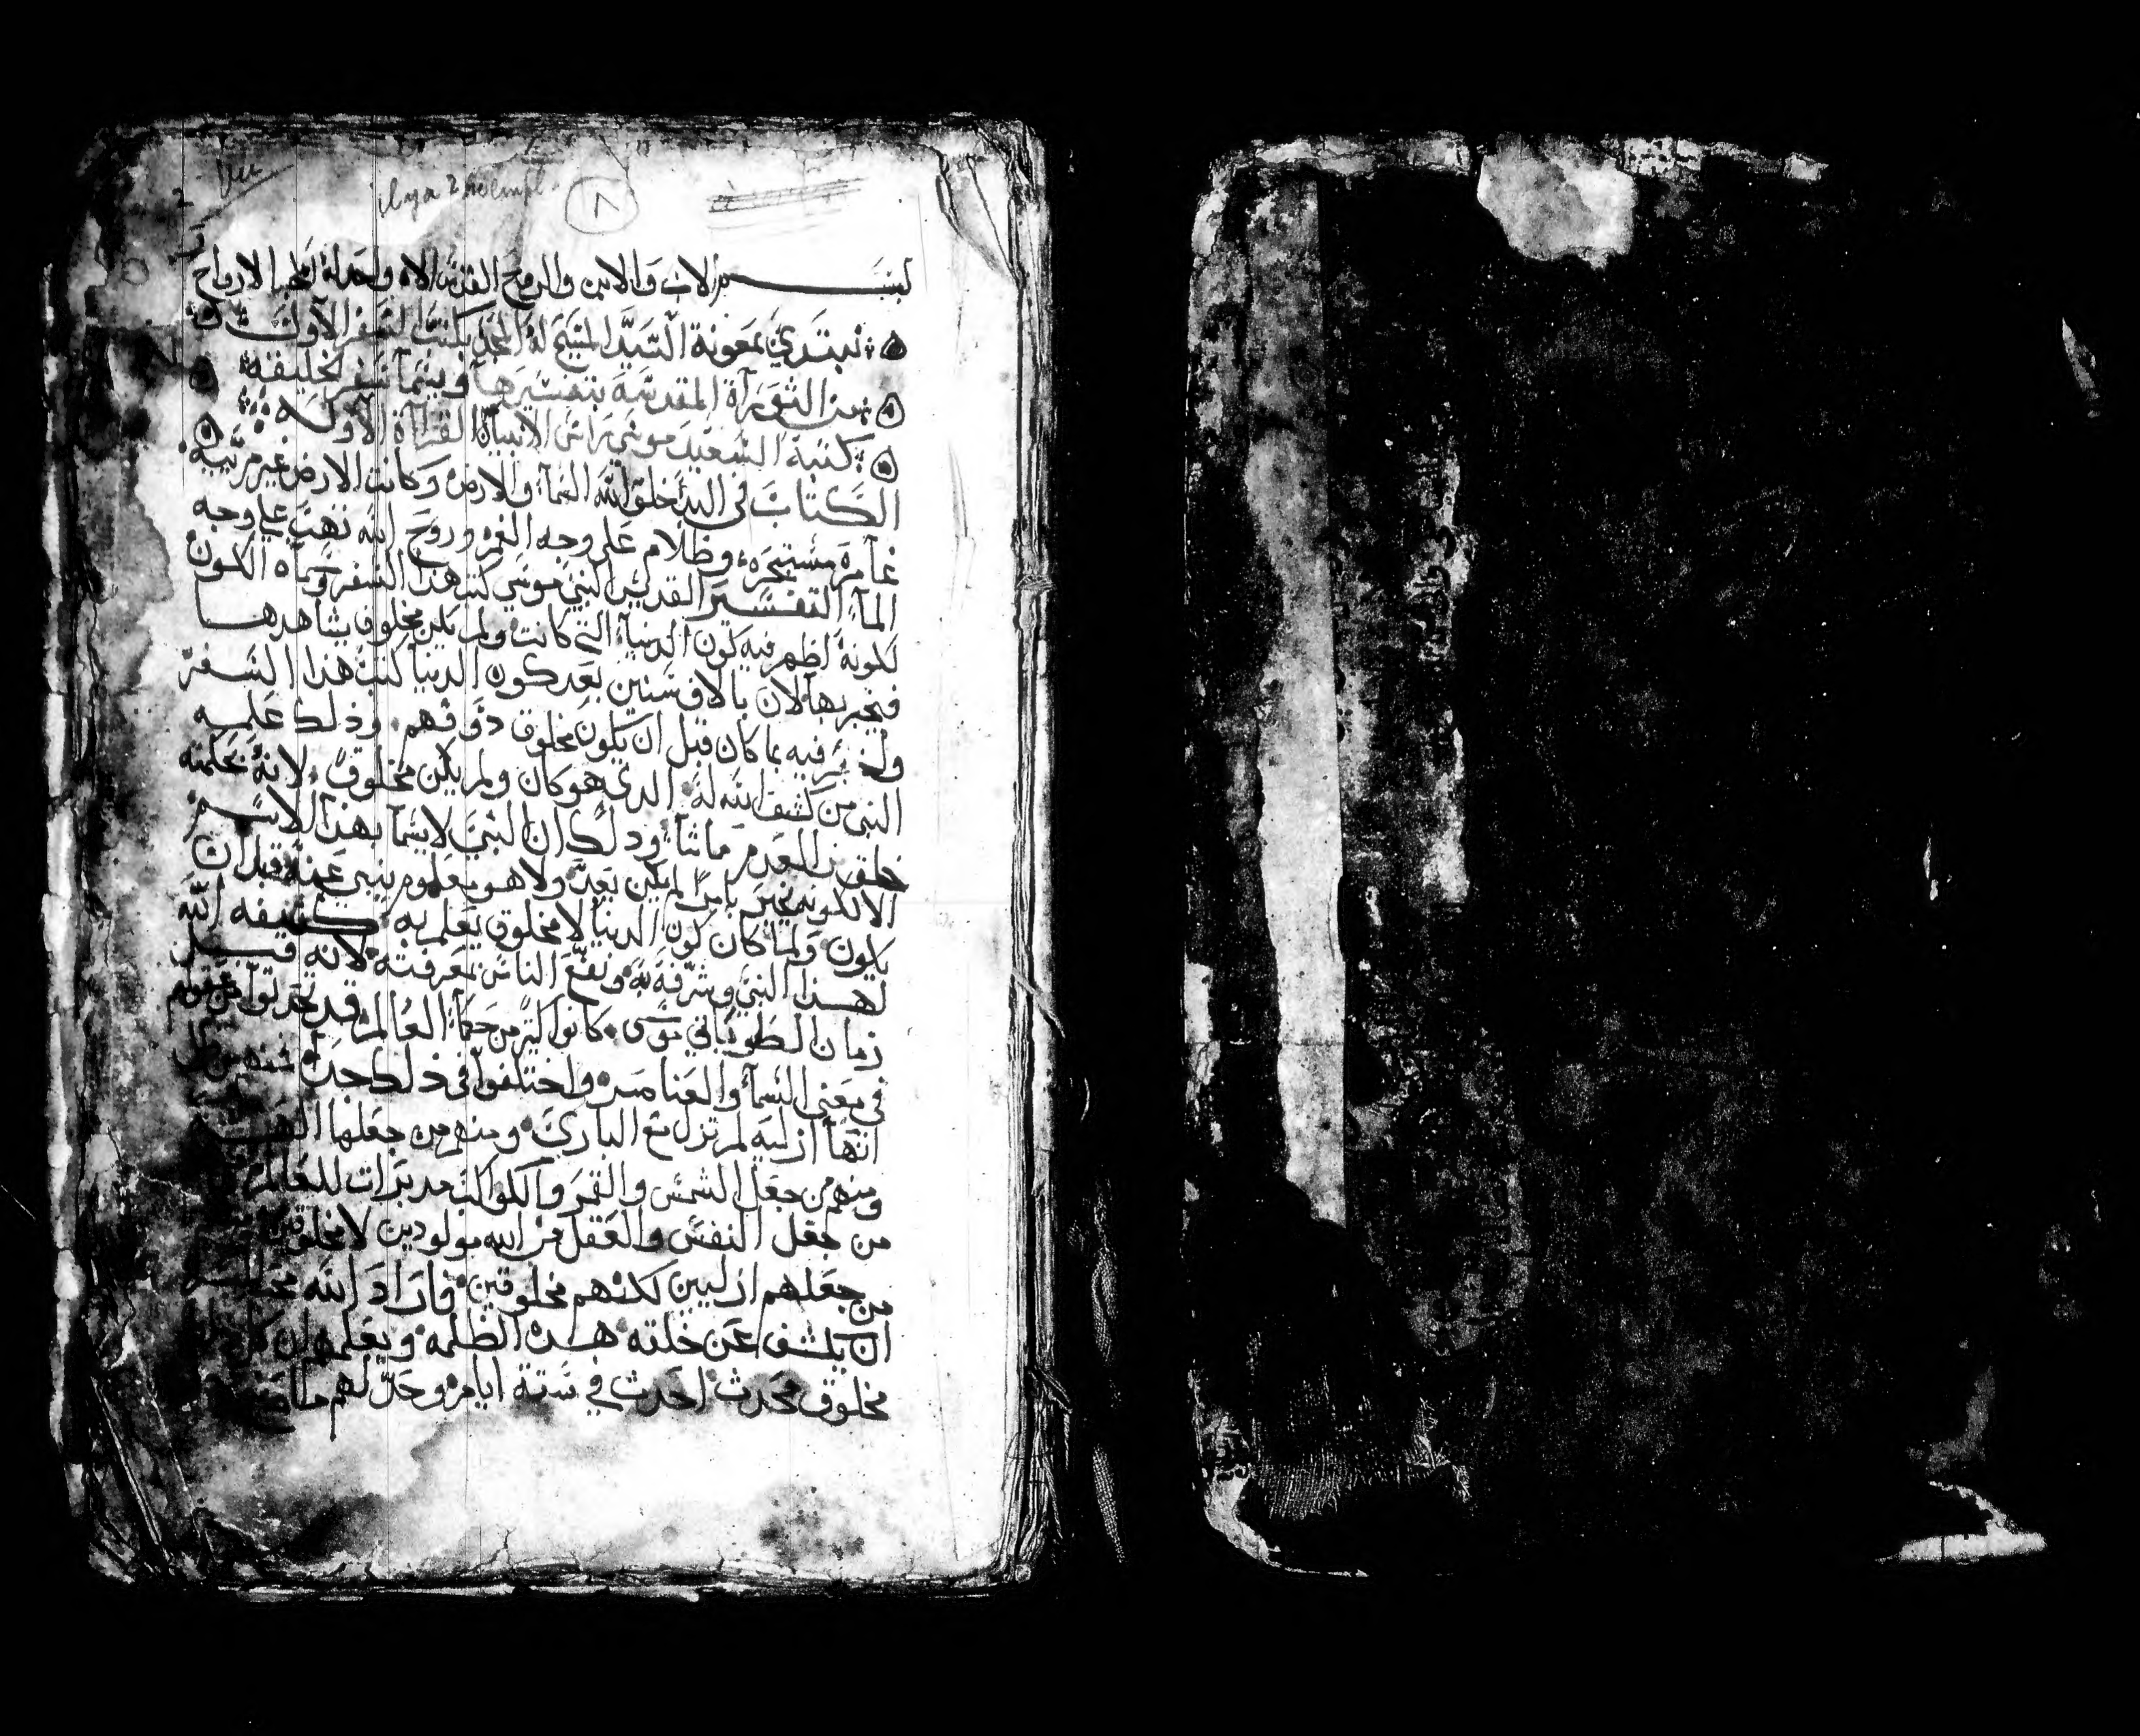 Vu
2 Il y a 2 exempl.
٨
بســـــم الاب والابن والروح القدس الاه واحد له تخطع الارواح
نبتدي بمعونة السيد المسيح له المجد بكتب السفر الاول
من التوراة المقدسة بتفسيرها ويسما سفر الخليقه
كتبه السعيد موسي راس الانبياء القرآاة الاوله
الكتاب في البدء خلق الله السمآء والارض وكانت الارض غير مرتيه
غآمره مستبحره وظلام علي وجه الغمر وروح الله تهب علي وجه
المآء التفسير القديس النبي موسي كتب هذا السفر وسماه الكون
لكونه اظهر فيه كون الدنيا التي كانت ولم يكن مخلوق يشاهدهـــا
فيخبر بها لان بالاف سنين بعد كون الدنيا كتب هذا الســفر
واخبر فيه بما كان قبل ان يكون مخلوق دو فهم وذلك علمــه
النبي من كشف الله له الدي هو كان ولم يكن مخلوق لانه بحكمته
خلق من العدم ما شآء ودلك ان النبي لا يسما بهذا الاســم
الا لكونه يخبر بامرا لم يكن بعد ولا هو معلوم ينبي عنه قبل ان
يكون ولما كان كون الدنيا لا مخلوق يعلم به كشفه الله
لهــذا النبي وشرفه به ونفع الناس بمعرفته لانه قبــل
زمان الطوباني موسى كانوا كثير من حكمآء العالم قد تحدثوا من عقولهم
في معني السمآء والعناصر واختلفوا في ذلك جدا فمنهم من قال
انهآ ازليه لم تزل مع الباري ومنهم من جعلها
ومنهم من جعل الشمس والقمر والكواكب مدبرات للعالم
من جعل النفس والعقل من الله مولودين لا مخلوقين
من جعلهم ازليين لكنهم مخلوقين فاراد الله
ان يكشف عن خلقته هـــذه الظلمه ويعلمهم ان كل
مخلوق محدث احدث في ستة ايام وحد لهم